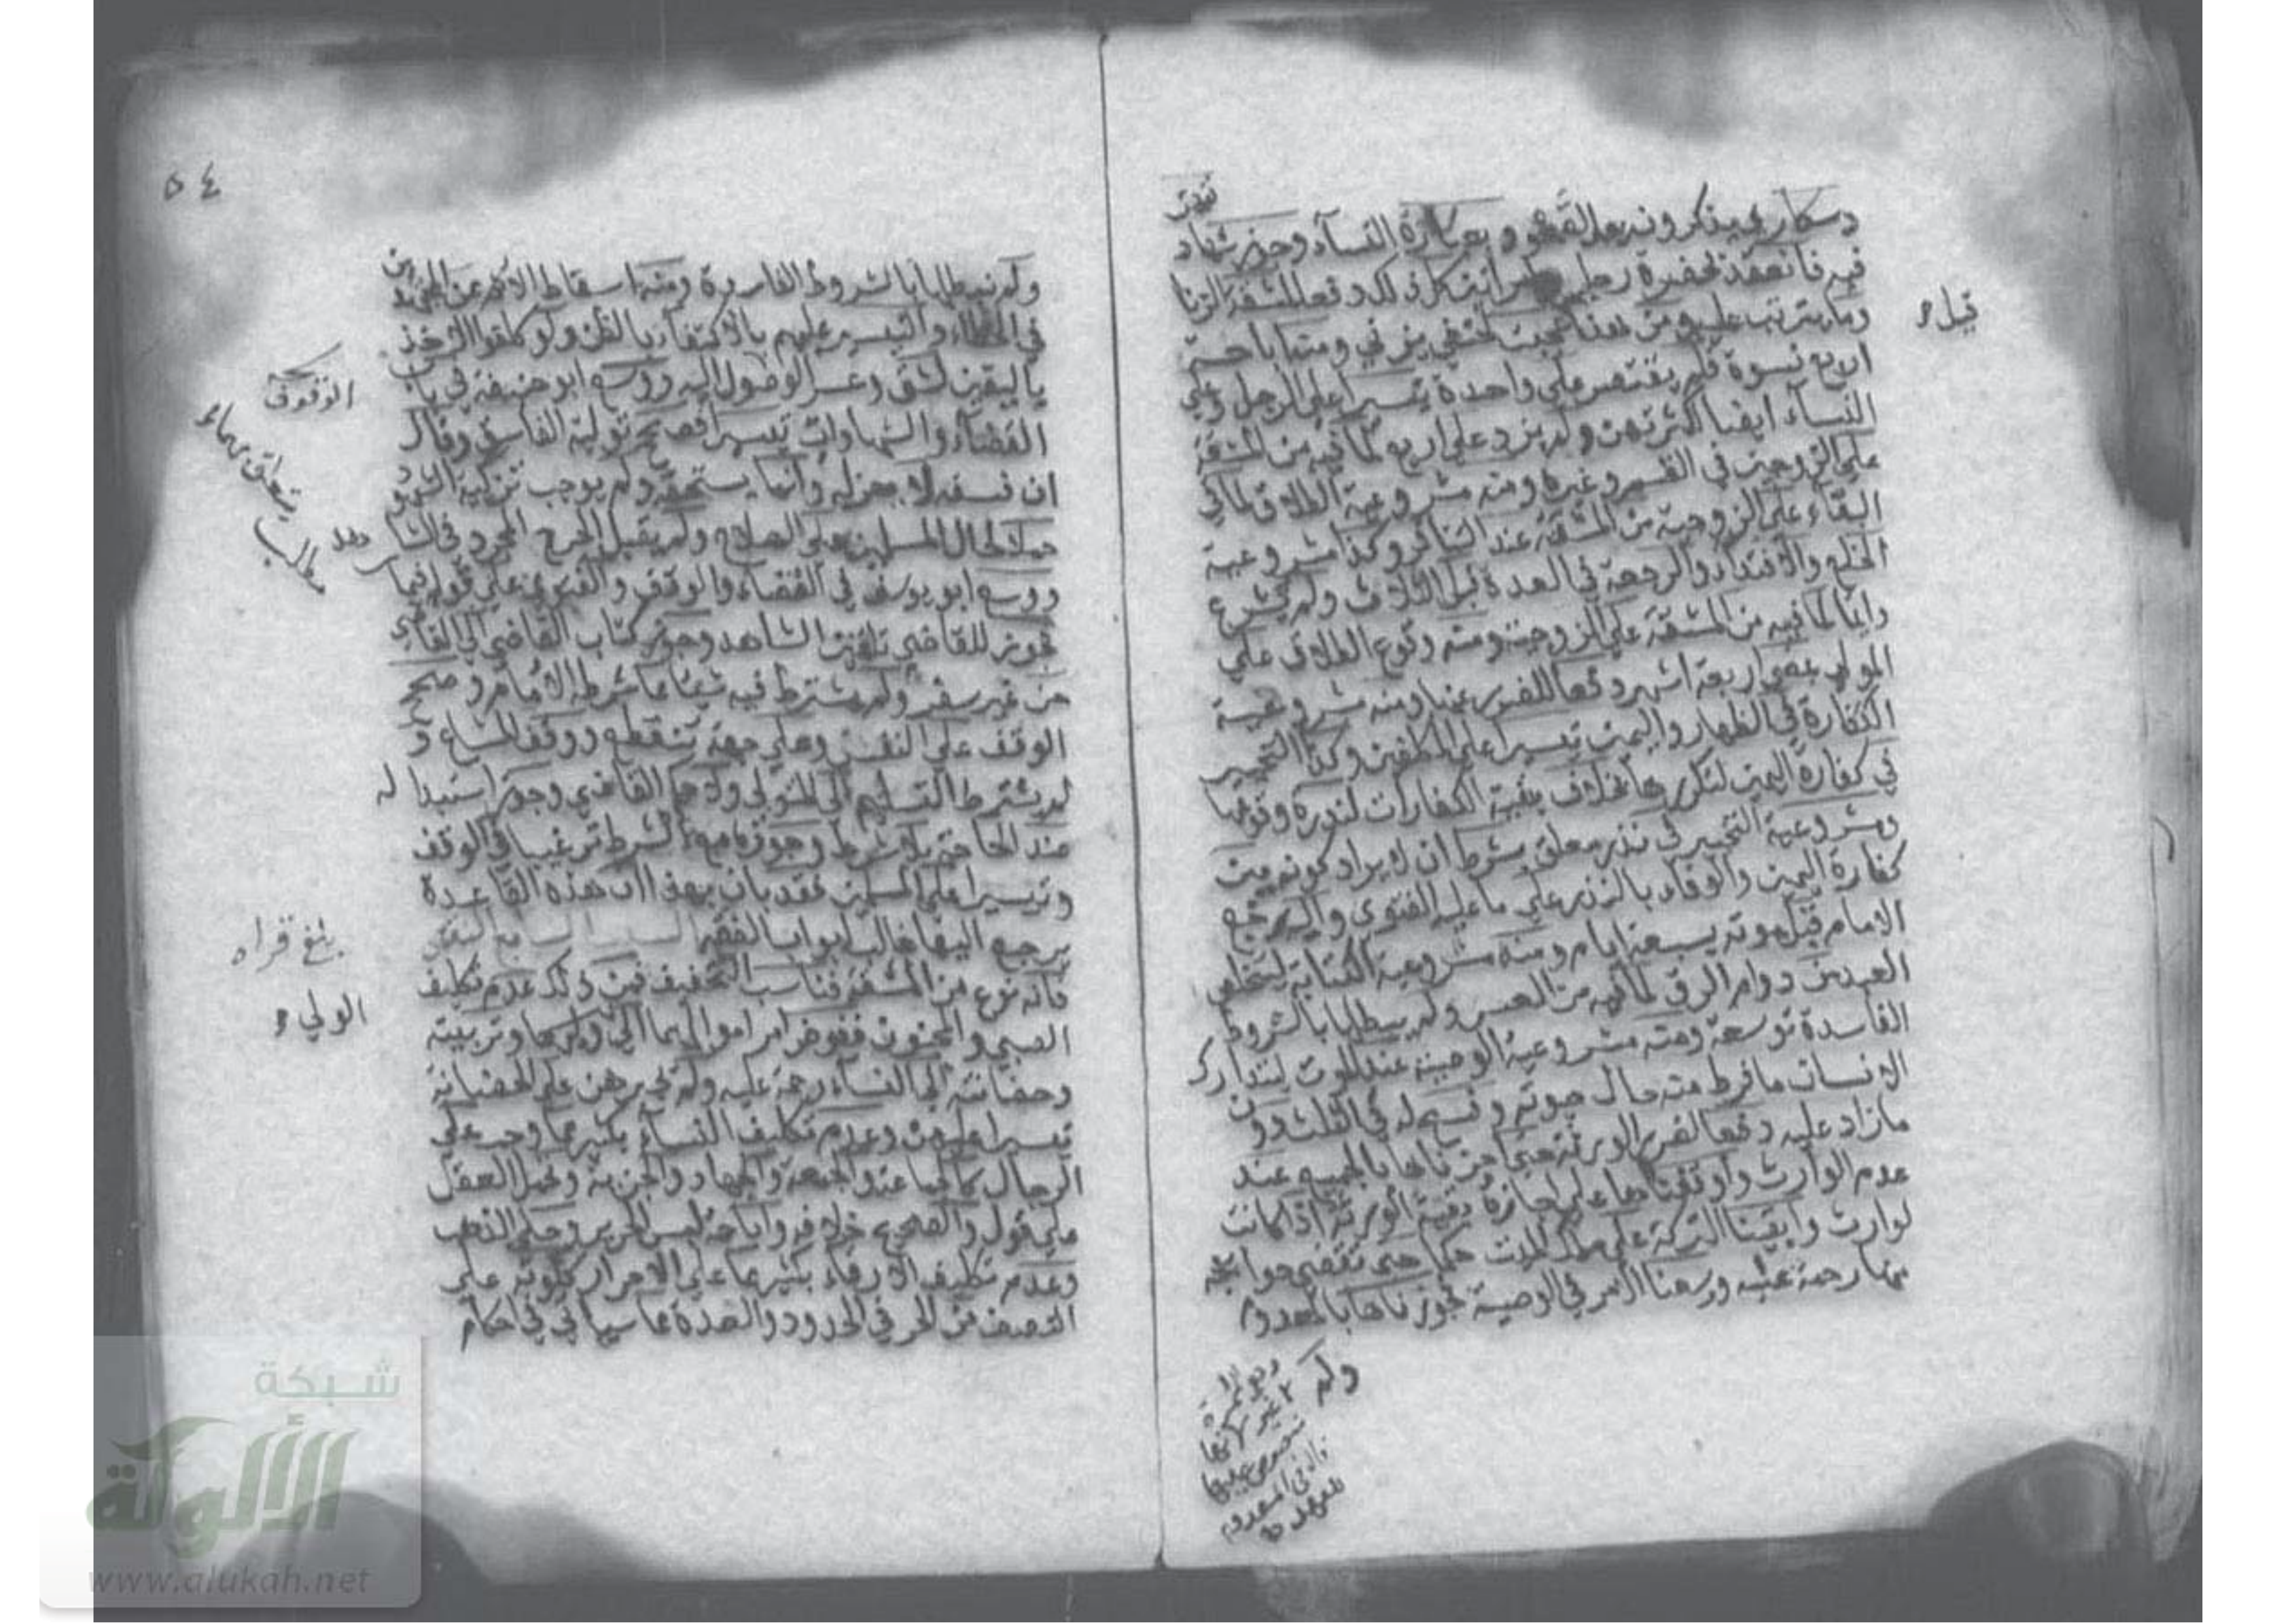 فيه فانعقد بحضرة رجل وامراتين كذلك دفعا لمشقة الزنا
وما يترتب عليه ومن هنا عجبت لحنفي يزني ومنه اباحة
اربع نسوة فلم يقتصر على واحدة تيسيرا على الرجل وعلى
النساء ايضا لكثرتهن ولم يزد على اربع لما فيه من المشقة
على الزوجين في القسم وغيره ومنه مشروعية الطلاق لما في
البقاء على الزوجية من المشقة عند التنافر وكذا مشروعية
الخلع والافتداء والرجعة في العدة قبل الثلاث ولم يشرع
دائما لما فيه من المشقة على الزوجة ومنه وقوع الطلاق على
المولى بمضي اربعة اشهر دفعا للضرر عنها ومنه مشروعية
الكفارة في الظهار واليمين تيسيرا على المكلفين وكذا التخيير
في كفارة اليمين لتكررها بخلاف بقية الكفارات لندرة وقوعها
ومشروعية التخيير في نذر معلق بشرط ان لا يراد كونه بين
كفارة اليمين والوفاء بالنذر على ما عليه الفتوى واليه رجع
الامام قبل موته بسبعة ايام ومنه مشروعية الكتابة ليتخلص
العبد من دوام الرق لما فيه من العسر ولم يبطلها بالشروط
الفاسدة توسعة ومنه مشروعية الوصية عند الموت ليتدارك
الانسان ما فرط منه حال حيوته وفسح له في الثلث دون
ما زاد عليه دفعا لضرر الورثة حتى اجزناها بالجميع عند
عدم الوارث واوقفناها على اجازة بقية الورثة اذا كانت
لوارث وابقينا التركة على ملك الميت حكما حتى تقضى حوايجه
منها رحمة عليه ووسعنا الامر في الوصية فجوزناها بالمعدوم
ولم
قيل
٥٤
ولم نبطلها بالشروط الفاسدة ومنه اسقاط الاثم عن المجتهدين
في الخطاء والتيسير عليهم بالاكتفاء بالظن ولو كلفوا الاخذ
باليقين لشق وعسر الوصول اليه ووسع ابو حنيفة في باب
القضاء والشهادات تيسيرا فصحح تولية الفاسق وقال
ان فسقه لا يعزله وانما يستحقه ولم يوجب تزكية الشهود
حملا لحال المسلمين على الصلاح ولم يقبل الجرح المجرد في الشاهد
ووسع ابو يوسف في القضاء والوقف والفتوى على قوله فيما
فجوز للقاضي تلقين الشاهد وجوز كتاب القاضي الى القاضي
من غير سفر ولم يشترط فيه شيئا مما شرطه الامام وصحح
الوقف على النفس وعلى جهة تنقطع ووقف المشاع و
لم يشترط التسليم الى المتولي ولا حكم القاضي وجوز استبداله
عند الحاجة بلا شرط وجوزه مع الشرط ترغيبا في الوقف
وتيسيرا على المسلمين فقد بان بهذا ان هذه القاعدة
يرجع اليها غالب ابواب الفقه السبب السابع النقص
فانه نوع من المشقة فناسب التخفيف فمن ذلك عدم تكليف
الصبي والمجنون ففوض امر اموالهما الى وليهما وتربيته
وحضانته الى النساء رحمة عليه ولم يجبرهن على الحضانة
تيسيرا عليهن وعدم تكليف النساء بكثير مما وجب على
الرجال كالجماعة والجمعة والجهاد والجزية وتحمل العقل
على قول والصحيح خلافه واباحة لبس الحرير وحلي الذهب
وعدم تكليف الارقاء بكثير مما على الاحرار ككونه على
النصف من الحر في الحدود والعدة مما سياتي في احكام
يتعلق بهاء
مطلب
بلغ قراه
الولي
شبكة
الألوكة
www.alukah.net